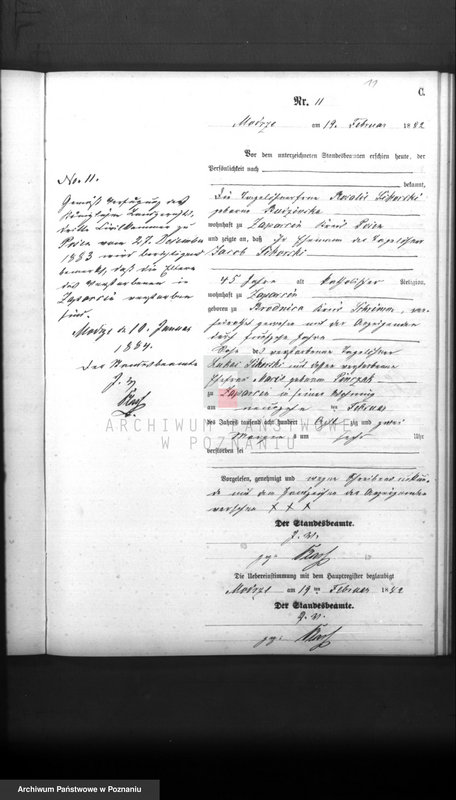 11
C.
Nr. 11
Modrze am 19. Februar 1882
Vor dem unterzeichneten Standesbeamten erschien heute, der
Persönlichkeit nach
bekannt,
die Tagelöhnerfrau Rosalie Sikorski
geborene
wohnhaft zu Zaparcin Kreis Posen
und zeigte an, daß ihr Ehemann der Tagelöhner
Jacob Sikorski
45 Jahre alt katholischer Religion,
wohnhaft zu Zaparcin
geboren zu Brodnica Kreis Schrimm, ver-
heirathet gewesen mit der Anzeigenden
durch Jahre
Sohn des verstorbenen Tagelöhner
Lukas Sikorski und dessen verstorbene
Ehefrau Marie geborene
zu Zaparcin in seiner Wohnung
am neunzehn ten Februar
des Jahres tausend acht hundert acht zig und zwei
Morgens um sechs Uhr
verstorben sei
Vorgelesen, genehmigt und wegen Schreibensunkun-
de mit dem Handzeichen der Anzeigenden
versehen X X X
Der Standesbeamte.
J. V.
gez.
Die Uebereinstimmung mit dem Hauptregister beglaubigt
Modrze am 19 ten Februar 1882
Der Standesbeamte.
J. V.
gez.
No. 11.
Gemäß Verfügung des
Königlichen Landgerichts,
dritte Civilkammer zu
Posen vom 27. Dezember
1883 wird berichtigend
bemerkt, daß die Eltern
des Verstorbenen in
Zaparcin verstorben
sind.
Modrze d. 10. Januar
1884.
Der Standesbeamte
J. V.
ARCHIWUM PAŃSTWOWE
W POZNANIU
Archiwum Państwowe w Poznaniu